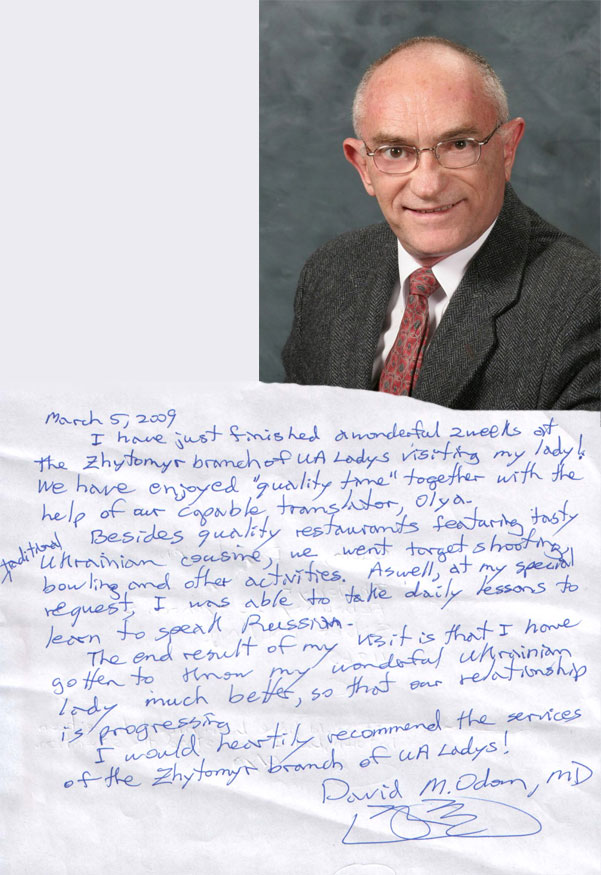 March 5, 2009
I have just finished a wonderful 2 weeks at
the Zhytomyr branch of UA Ladys visiting my lady!
We have enjoyed "quality time" together with the
help of our capable translator, Olya.
Besides quality restaurants featuring tasty
traditional Ukrainian cousine, we went target shooting,
bowling and other activities. Aswell, at my special
request, I was able to take daily lessons to
learn to speak Russian.
The end result of my visit is that I have
gotten to know my wonderful Ukrainian
lady much better, so that our relationship
is progressing
I would heartily recommend the services
of the Zhytomyr branch of UA Ladys!
David M. Odom, MD